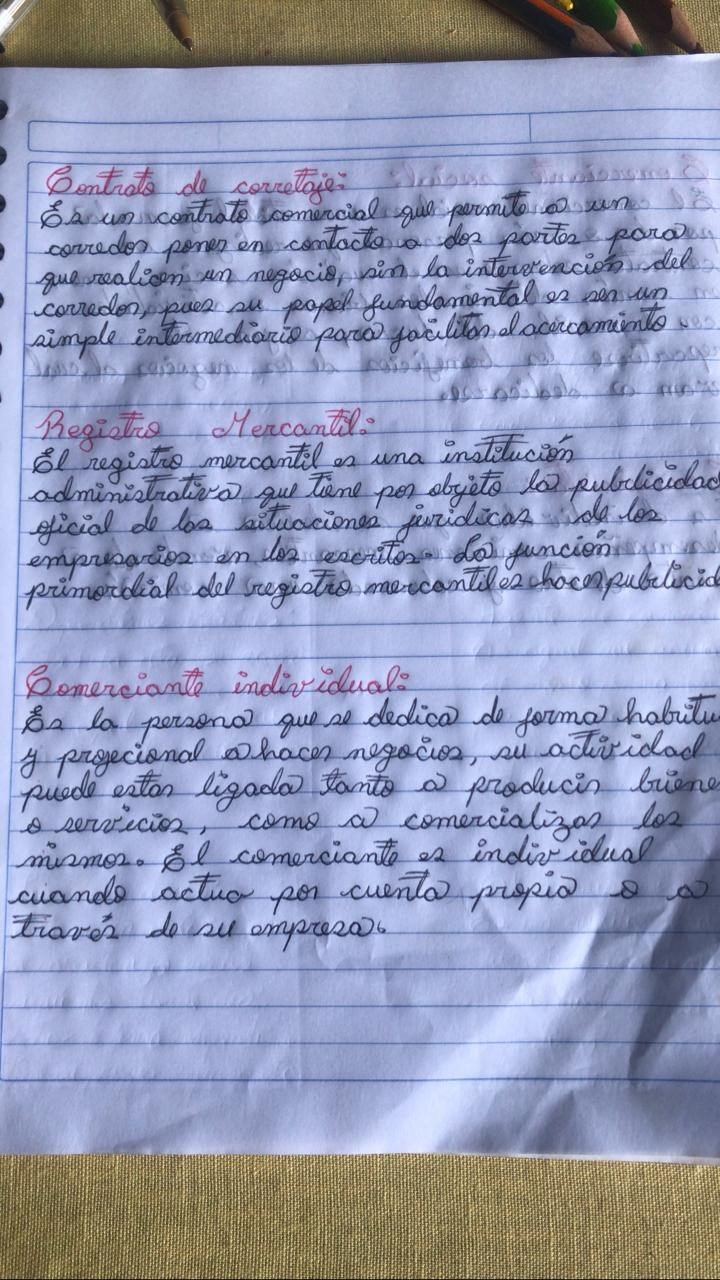 Contrato de corretaje:
Es un contrato comercial que permite a un
corredor poner en contacto a dos partes para
que realicen un negocio, sin la intervención del
corredor, pues su papel fundamental es ser un
simple intermediario para facilitar el acercamiento
Registro Mercantil:
El registro mercantil es una institución
administrativa que tiene por objeto la publicidad
oficial de las situaciones jurídicas de los
empresarios en los escritos. La función
primordial del registro mercantil es hacer publicid
Comerciante individual:
Es la persona que se dedica de forma habitu
y profecional a hacer negocios, su actividad
puede estar ligada tanto a producir biene
o servicios, como a comercializar los
mismos. El comerciante es individual
cuando actua por cuenta propia o a
través de su empresa.